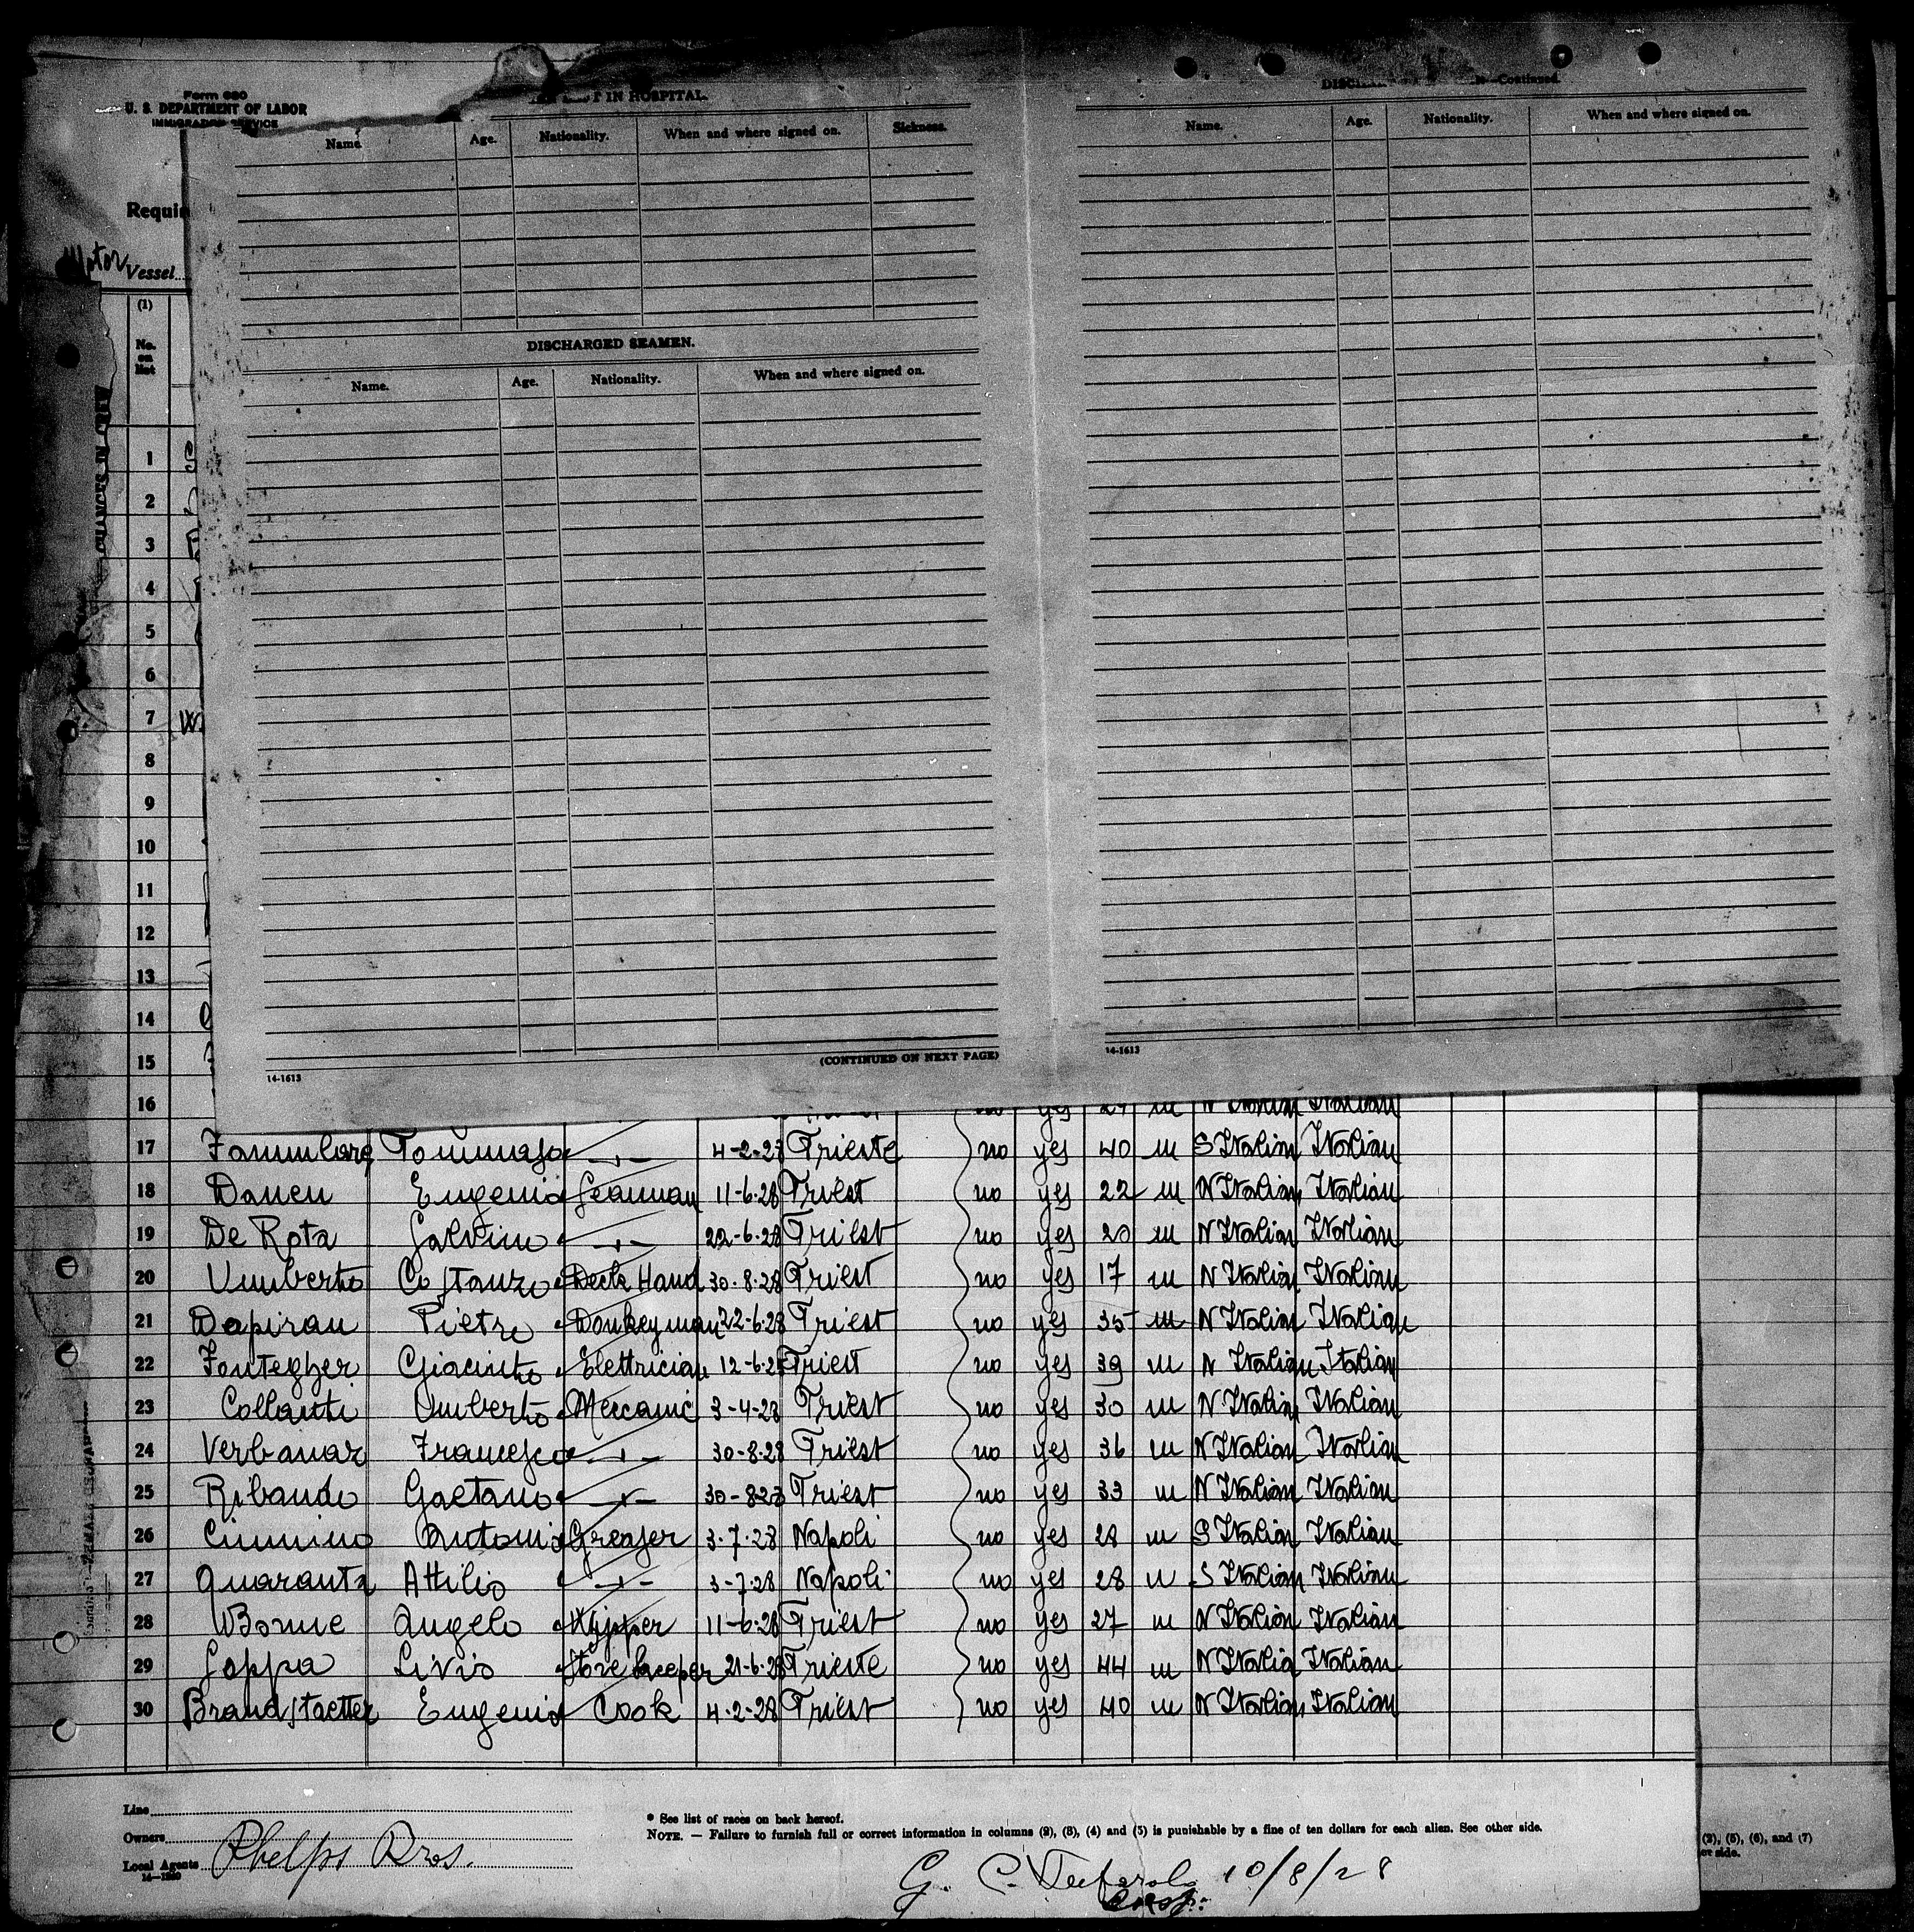 Form 680
U. S. DEPARTMENT OF LABOR
IMMIGRATION SERVICE
Requir
Motor Vessel
(1)
No. on list
CHANGES IN CREW
T IN HOSPITAL.
Name. Age. Nationality. When and where signed on. Sickness.
DISCHARGED SEAMEN.
Name. Age. Nationality. When and where signed on.
(CONTINUED ON NEXT PAGE)
14-1613
—Continued.
Name. Age. Nationality. When and where signed on.
14-1613
1
2
3
4
5
6
7
8
9
10
11
12
13
14
15
16 no yes m N Italian Italian
17 Tommaso 4-2-28 Trieste no yes 40 m S Italian Italian
18 Danen Eugenio Seaman 11-6-28 Triest no yes 22 m N Italian Italian
19 De Rota Salvino -"- 22-6-28 Triest no yes 20 m N Italian Italian
20 Umberto Costanzo Deck Hand 30-8-28 Triest no yes 17 m N Italian Italian
21 Dapiran Pietro Donkeyman 22-6-28 Triest no yes 35 m N Italian Italian
22 Fontegher Giacinto Elettrician 12-6-28 Triest no yes 39 m N Italian Italian
23 Umberto Mecanic 3-4-28 Triest no yes 30 m N Italian Italian
24 Verbanar Francesco -"- 30-8-28 Triest no yes 36 m N Italian Italian
25 Ribaudo Gaetano -"- 30-8-28 Triest no yes 33 m N Italian Italian
26 Cimmino Antonio Greaser 3-7-28 Napoli no yes 28 m S Italian Italian
27 Quaranta Attilio -"- 3-7-28 Napoli no yes 28 m S Italian Italian
28 Angelo 11-6-28 Triest no yes 27 m N Italian Italian
29 Livio Storekeeper 21-6-28 Trieste no yes 44 m N Italia Italian
30 Brandstaetter Eugenio Cook 4-2-28 Triest no yes 40 m N Italian Italian
Line
Owners
Local Agents Phelps Bros.
14-1240
* See list of races on back hereof.
NOTE. — Failure to furnish full or correct information in columns (2), (3), (4) and (5) is punishable by a fine of ten dollars for each alien. See other side.
G. C. 10/8/28
Insp.
(2), (5), (6), and (7)
er side.